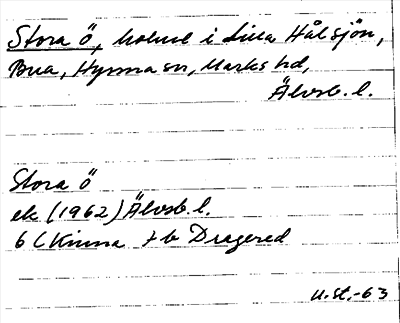 Stora Ö, holme i Lilla Hålsjön,
Bua, Hyssna sn, Marks hd,
Älvsb. l.
Stora Ö
ek (1962) Älvsb. l.
6 C Kinna 7 b Dragered
U.St.-63